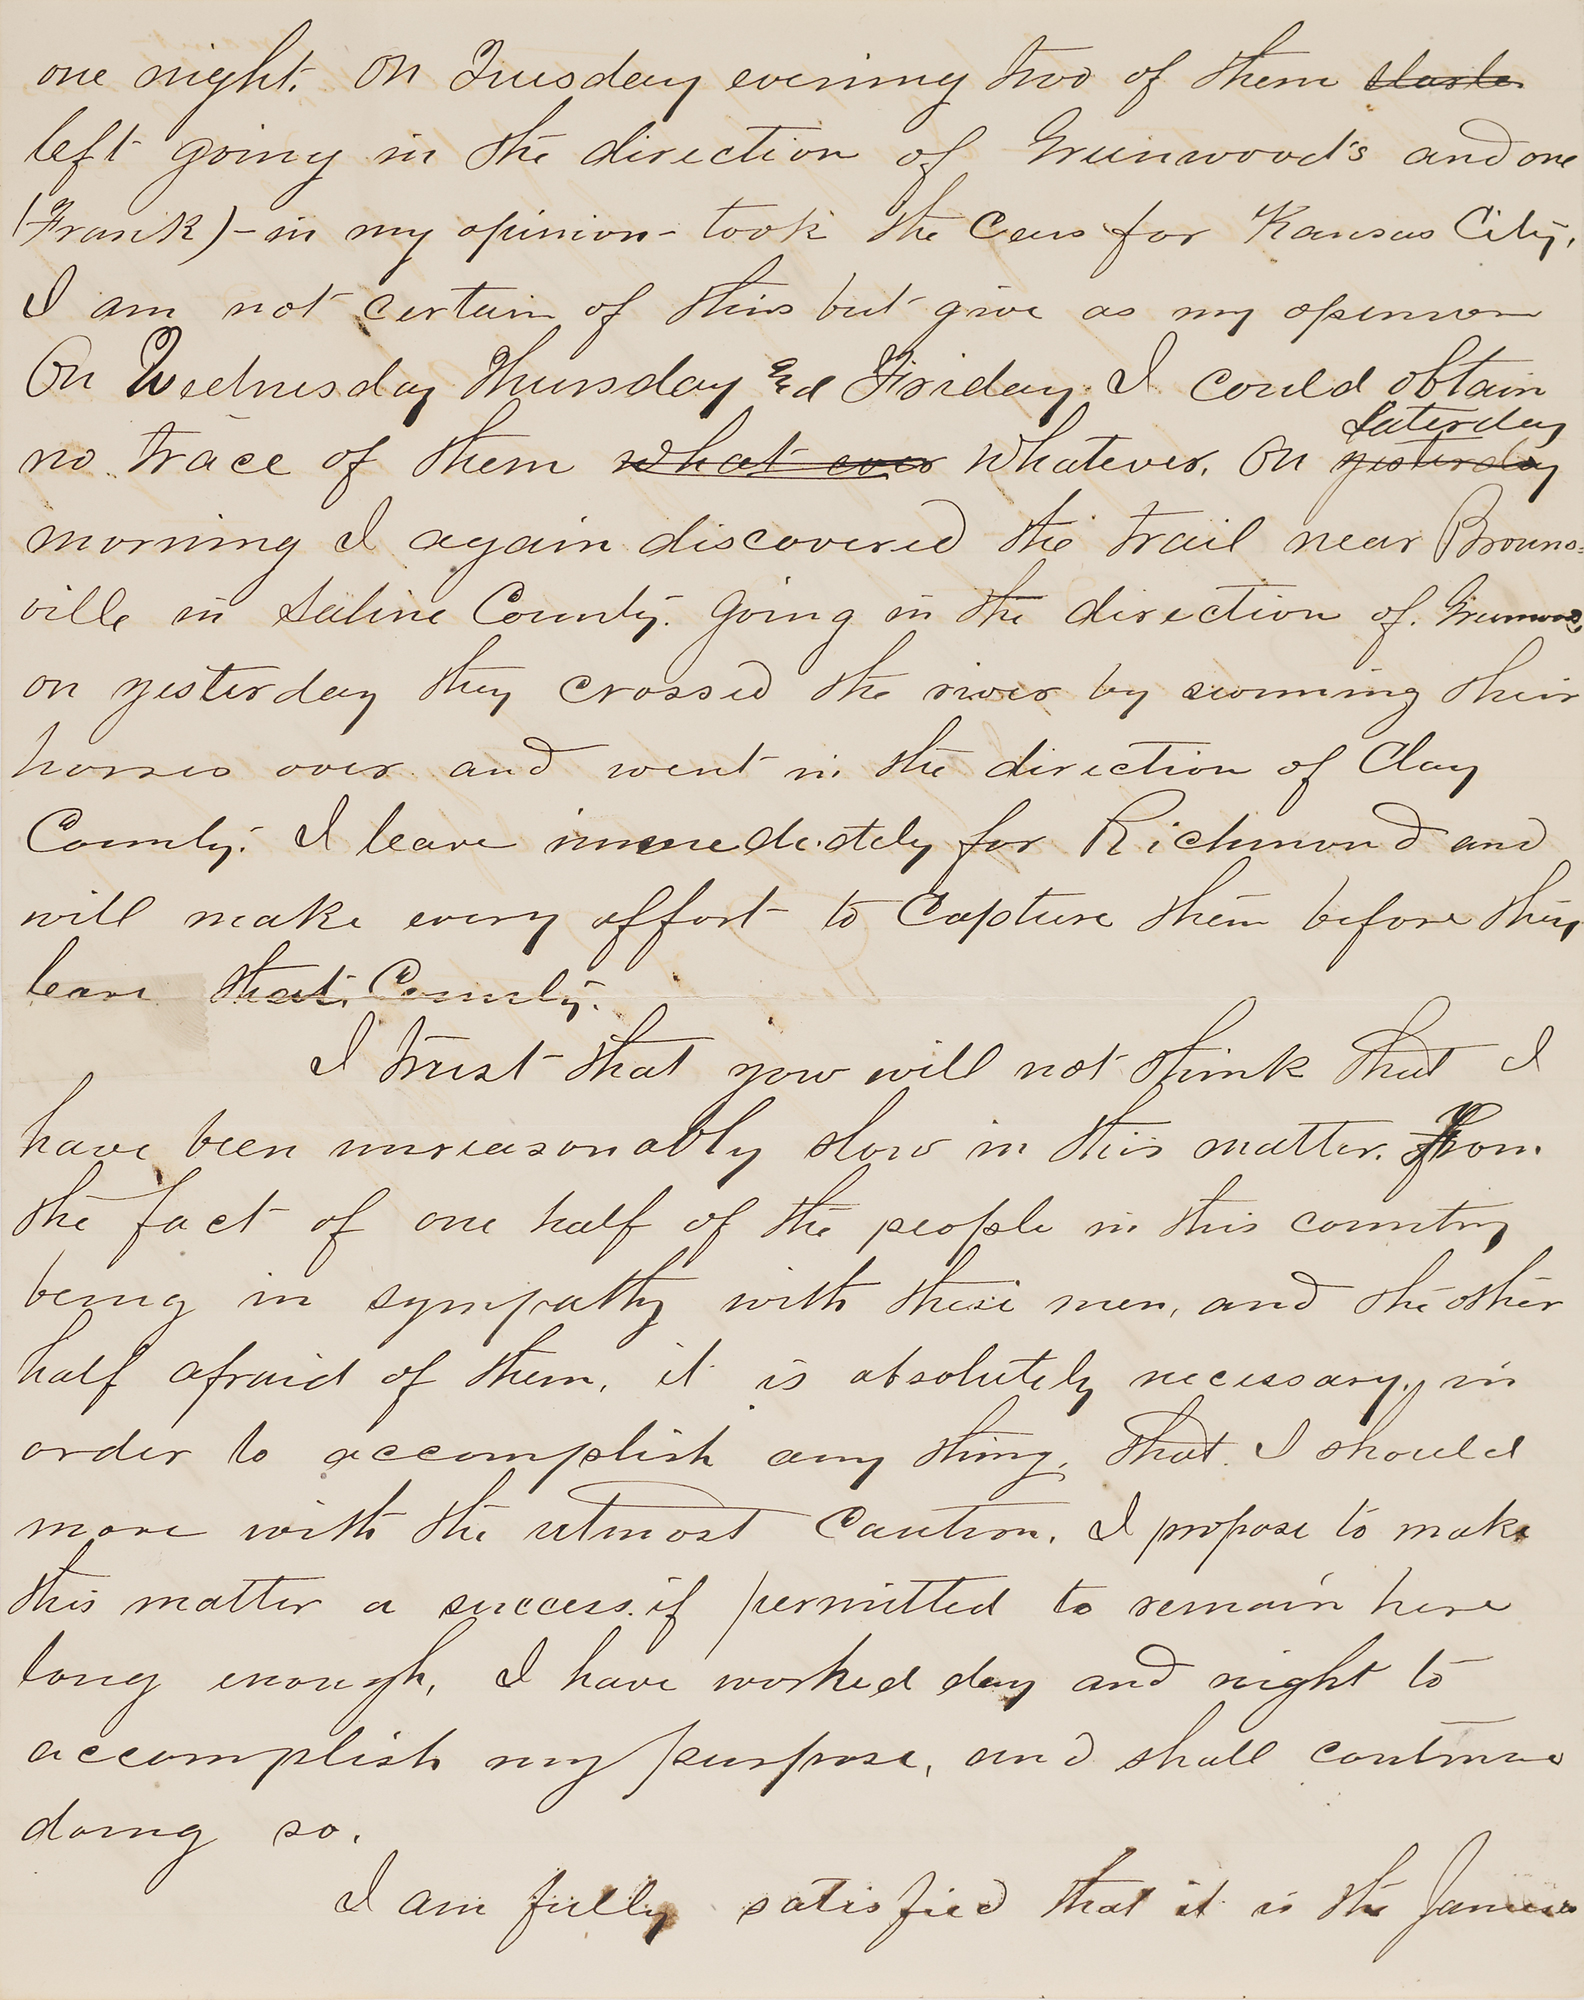 one night. On Tuesday evening two of them
left going in the direction of Greenwood's and one
(Frank) - in my opinion - took the Cars for Kansas City.
I am not certain of this but give as my openion
On Wednesday Thursday and Friday I could obtain
Saturday
no trace of them what ever whatever. On yesterday
morning I again discovered the trail near Browns=
ville in Saline County. Going in the direction of
on yesterday they crossed the river by swiming their
horses over and went in the direction of Clay
County. I leave immediately for Richmond and
will make every effort to Capture them before they
leave that County.
I trust that you will not think that I
have been unreasonably slow in this matter. From
the fact of one half of the people in this country
being in sympathy with these men, and the other
half afraid of them, it is absolutely necessary, in
order to accomplish any thing, that I should
move with the utmost Caution. I propose to make
this matter a success. if permitted to remain here
long enough, I have worked day and night to
accomplish my purpose, and shall continue
doing so.
I am fully satisfied that it is the James